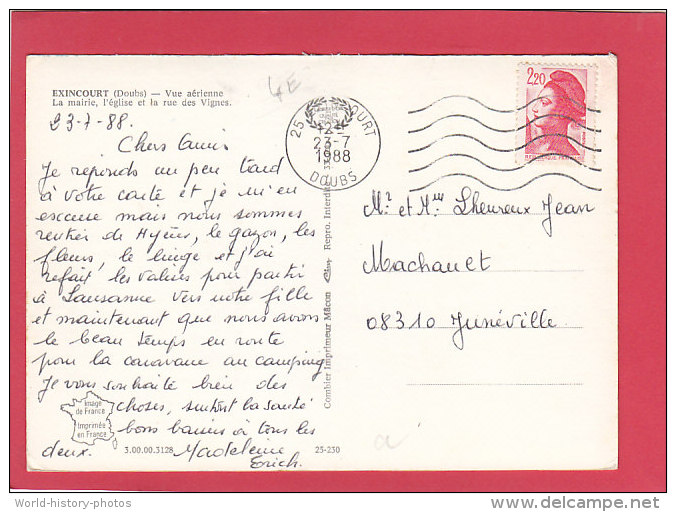 EXINCOURT (Doubs) — Vue aérienne
La mairie, l'église et la rue des Vignes.
4E
23-7-88.
Chers amis
Je réponds un peu tard
à votre carte et je m'en
excuse mais nous sommes
rentrés de Hyères, le gazon, les
fleurs, le linge et j'ai
refait les valises pour partir
à Lausanne vers notre fille
et maintenant que nous avons
le beau temps en route
pour la caravane au camping
Je vous souhaite bien des
choses, surtout la santé
bons baisers à tous les
deux. Madeleine
Erich.
Image
de France
Imprimée
en France
3.00.00.3128
25-230
Combier Imprimeur Mâcon
Repro. Interdite
25 COURT
23-7
1988
DOUBS
2,20
Mr et Mme Lheureux Jean
Machault
08310 Junéville
a
World-history-photos
www.delcampe.net